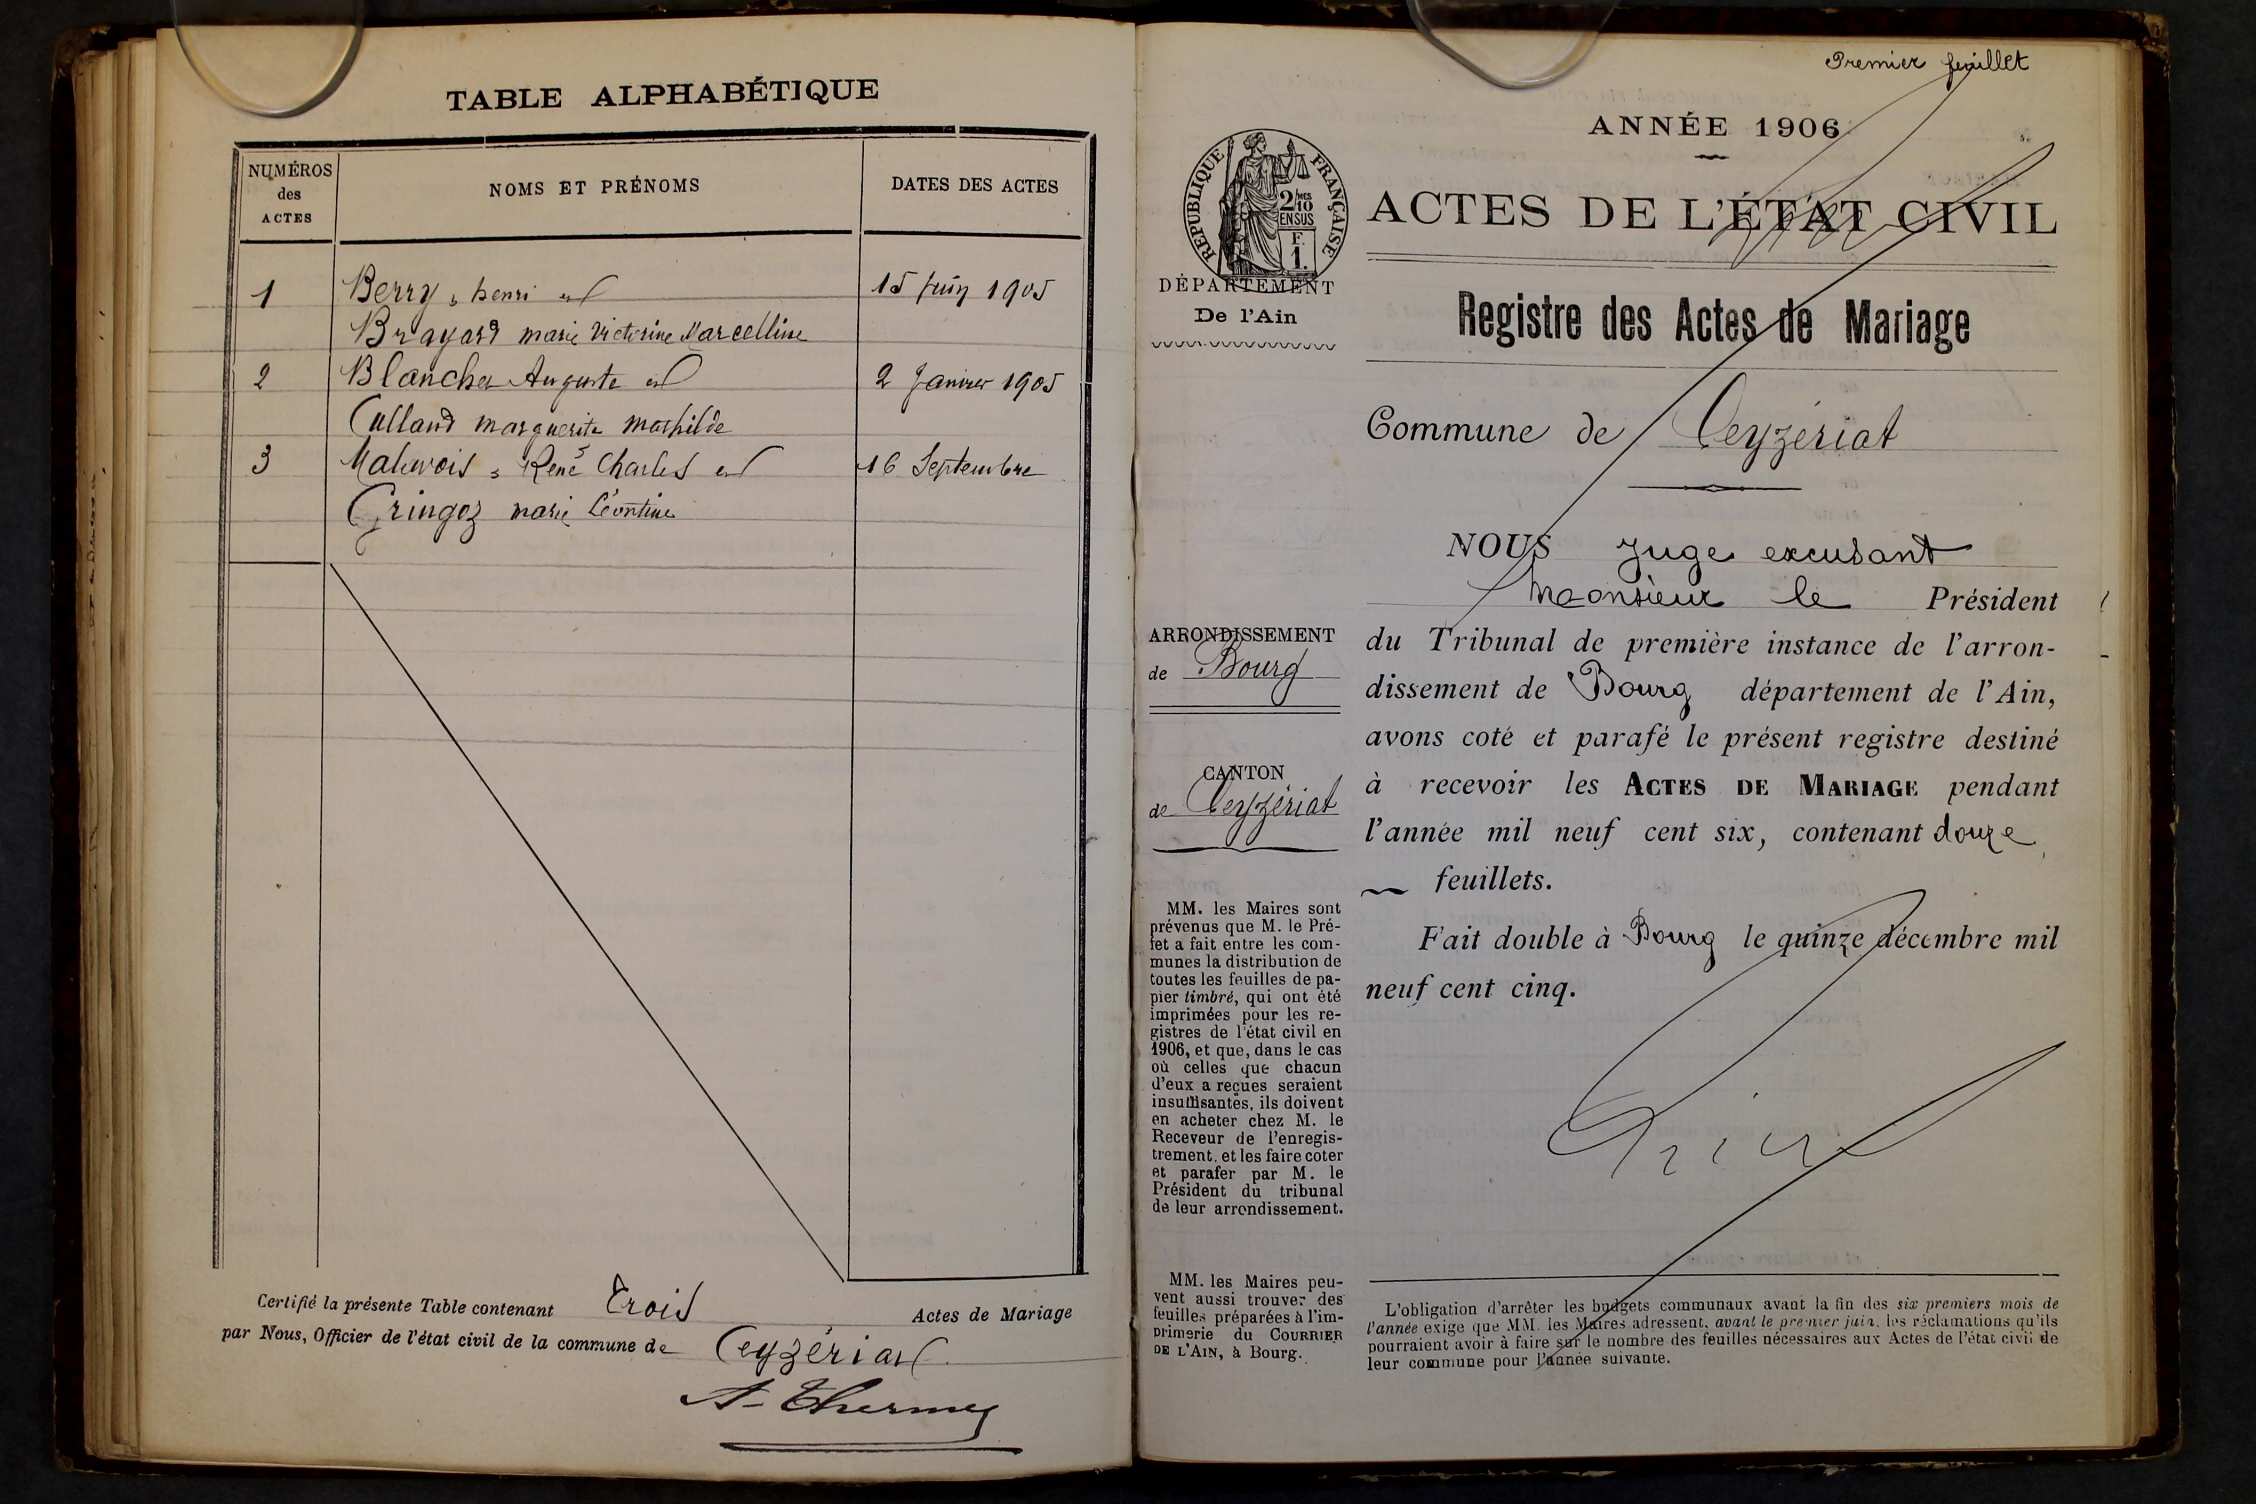 TABLE ALPHABÉTIQUE
NUMÉROS
des
ACTES
NOMS ET PRÉNOMS
DATES DES ACTES
1 Berry, henri et 15 juin 1905
Brayard marie Victorine Marcelline
2 Blanchet Auguste et 2 Janvier 1905
Culland marguerite mathilde
3 René Charles et 16 Septembre
Gringoz marie Léontine
Certifié la présente Table contenant Trois Actes de Mariage
par Nous, Officier de l'état civil de la commune de Ceyzériat
Premier feuillet
ANNÉE 1906
RÉPUBLIQUE FRANÇAISE
2/10
EN SUS
F.
1.
ACTES DE L'ÉTAT CIVIL
DÉPARTEMENT
De l'Ain
Registre des Actes de Mariage
Commune de Ceyzériat
NOUS Juge excusant
Monsieur le Président
du Tribunal de première instance de l'arron-
dissement de Bourg département de l'Ain,
avons coté et parafé le présent registre destiné
à recevoir les ACTES DE MARIAGE pendant
l'année mil neuf cent six, contenant douze
feuillets.
Fait double à Bourg le quinze décembre mil
neuf cent cinq.
ARRONDISSEMENT
de Bourg
CANTON
de Ceyzériat
MM. les Maires sont
prévenus que M. le Pré-
fet a fait entre les com-
munes la distribution de
toutes les feuilles de pa-
pier timbré, qui ont été
imprimées pour les re-
gistres de l'état civil en
1906, et que, dans le cas
où celles que chacun
d'eux a reçues seraient
insuffisantes, ils doivent
en acheter chez M. le
Receveur de l'enregis-
trement, et les faire coter
et parafer par M. le
Président du tribunal
de leur arrondissement.
MM. les Maires peu-
vent aussi trouver des
feuilles préparées à l'im-
primerie du COURRIER
DE L'AIN, à Bourg.
L'obligation d'arrêter les budgets communaux avant la fin des six premiers mois de
l'année exige que MM. les Maires adressent, avant le premier juin, les réclamations qu'ils
pourraient avoir à faire sur le nombre des feuilles nécessaires aux Actes de l'état civil de
leur commune pour l'année suivante.